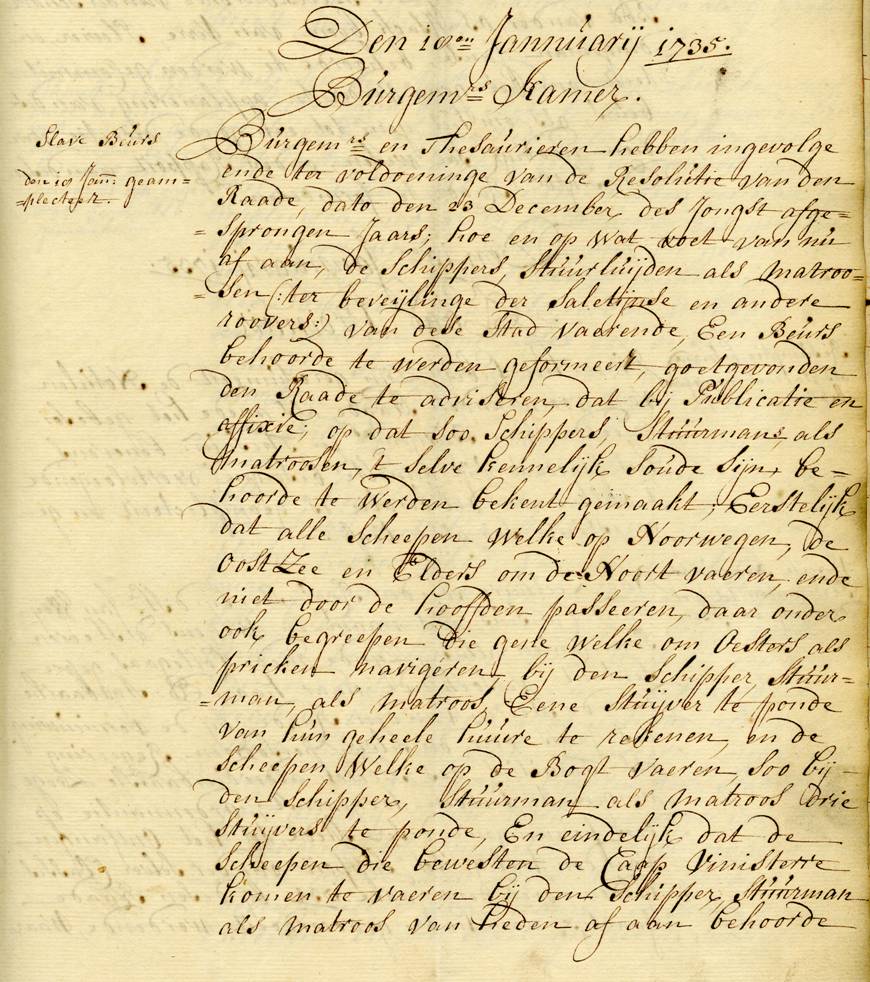 Den 18en Jannuarij 1735.
Burgemrs Kamer.
Slave Beurs
den 18 Jan: geam=
=plecteer.
Burgemrs en Thesaurieren hebben ingevolge
ende ter voldoeninge van de Resolutie van den
Raade, dato den 23 December des Jongst afge=
=sprongen Jaars; hoe en op wat voet van nu
af aan, de Schippers, Stuurluijden als matroo=
=sen (:ter beveijlinge der Saletijnse en andere
roovers:) van dese Stad vaerende, Een Beurs
behoorde te werden geformeert, goetgevonden
den Raade te adviseren, dat bij Publicatie en
affixie; op dat soo Schippers, Stuurmans, als
matroosen, 't selve kennelijk soude sijn, be=
hoorde te werden bekent gemaakt; Eerstelijk
dat alle scheepen welke op Noorwegen, de
Oost Zee en Elders om de Noort vaeren, ende
niet door de hooffden passeeren, daar onder
ook begreepen die gene welke om Oesters als
pricken navigeren, bij den Schipper, Stuur=
=man als matroos, Eene Stuyver te ponde
van hun geheele huure te rekenen, en de
scheepen welke op de Bogt vaeren, soo bij
den Schipper, Stuurman als matroos drie
stuijvers te ponde, En eindelijk dat de
scheepen die bewesten de Caap Vinisterre
komen te vaeren bij den Schipper, Stuurman
als matroos van heden af aan behoorde